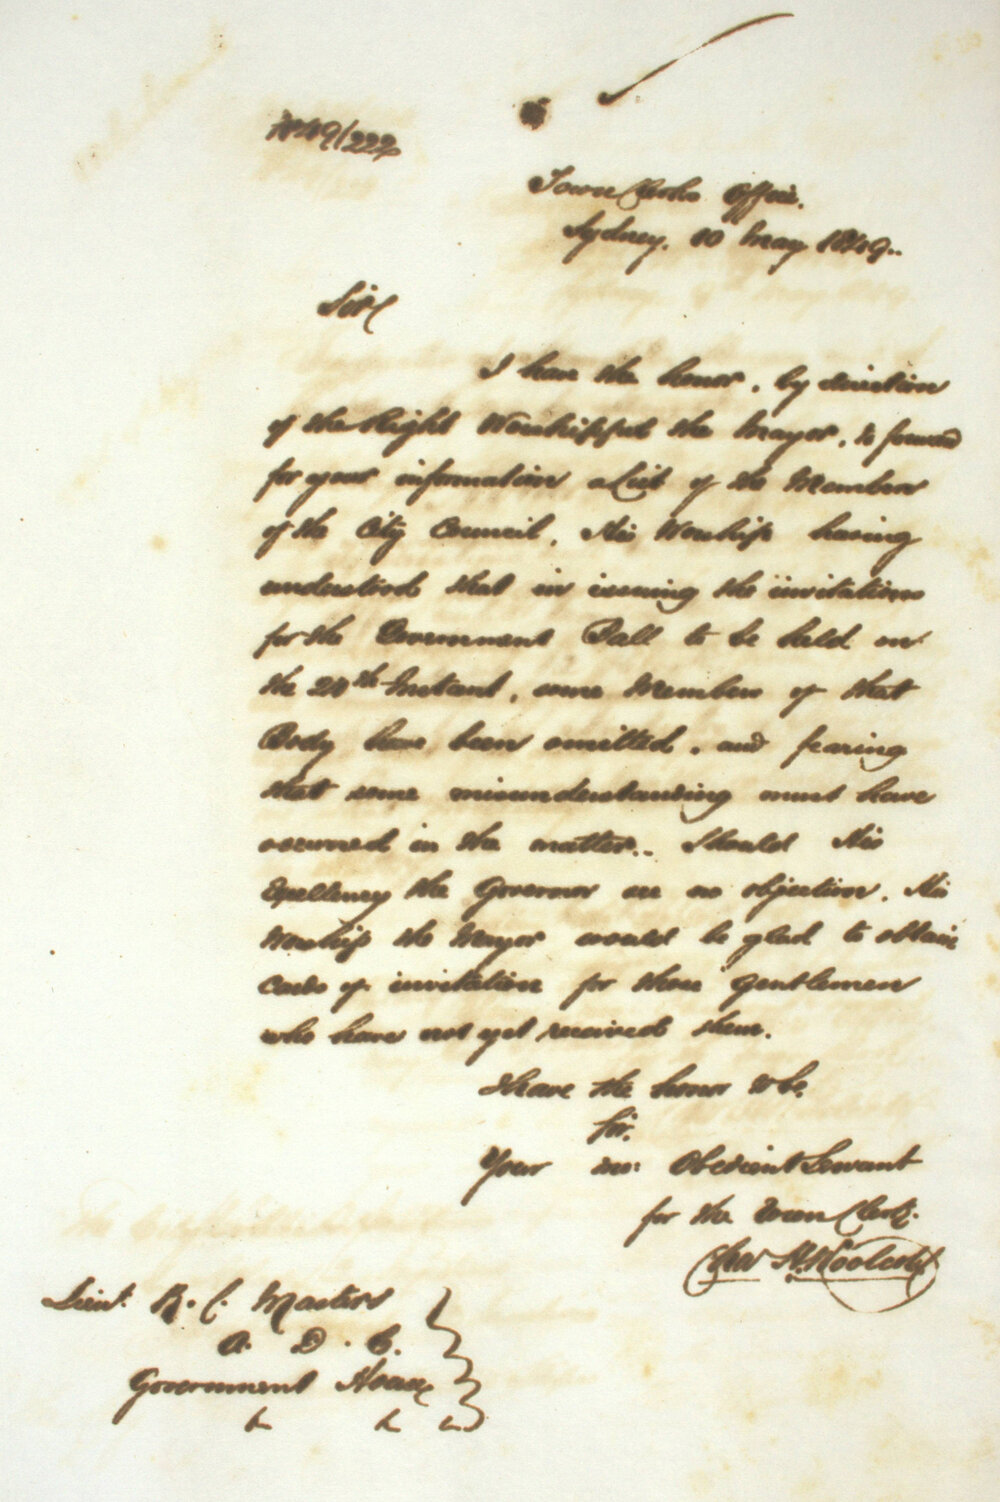 1849/222
Town Clerks Office.
Sydney, 10 May 1849..
Sir
I have the honor, by direction
of the Right Worshipful the Mayor, to forward
for your information a List of the Members
of the City Council, His Worship having
understood that in issuing the invitations
for the Government Ball to be held on
the 24th Instant, some Members of that
Body have been omitted, and fearing
that some misunderstanding must have
occurred in the matter.. Should His
Excellency the Governor see no objection, His
Worship the Mayor would be glad to obtain
Cards of invitation for those Gentlemen
who have not yet received them.
I have the honor to be,
Sir,
Your mo: Obedient Servant
for the Town Clerk.
Chas H. Woolcott
Lieut. R. C. Masters
A. D. C.
Government House